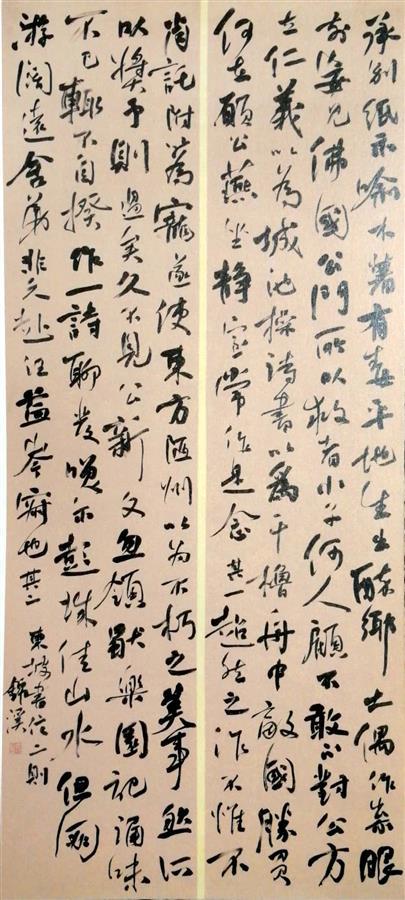 承別紙示喻木蘖有毒平地生出醉鄉土偶作祟眼
前妄見佛國公門所以救者小子何人顧不敢不對公方
立仁義以為城池操詩書以為干櫓舟中敵國勝負
何在願公燕坐靜室常作是念其一超然之作不惟不
肖託附為寵遂使東方陋州以為不朽之美事然所
以獎予則過矣久不見公新文忽領獨樂園記誦味
不已輒不自揆作一詩聊發咲尔彭城佳山水但朋
游闊遠舍弟非久赴任益岑寂也其二
東坡書信二則
錦溪